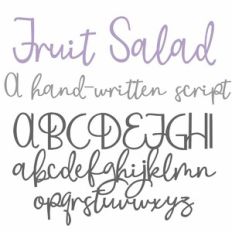 Fruit Salad
A hand-written script
ABCDEFGHI
abcdefghijklmn
opqrstuvwxyz